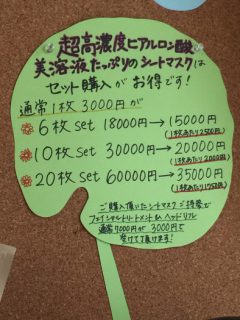 超高濃度ヒアルロン酸
美溶液たっぷりのシートマスクは
セット購入がお得です!
通常1枚 3000円が
6枚set 18000円→15000円
(1枚あたり2500円)
10枚set 30000円→20000円
(1枚あたり2000円)
20枚set 60000円→35000円
(1枚あたり1750円)
ご購入頂いたシートマスクご持参で
フェイシャルトリートメント&ヘッドリフレ
通常7000円が3000円で
受けて頂けます!